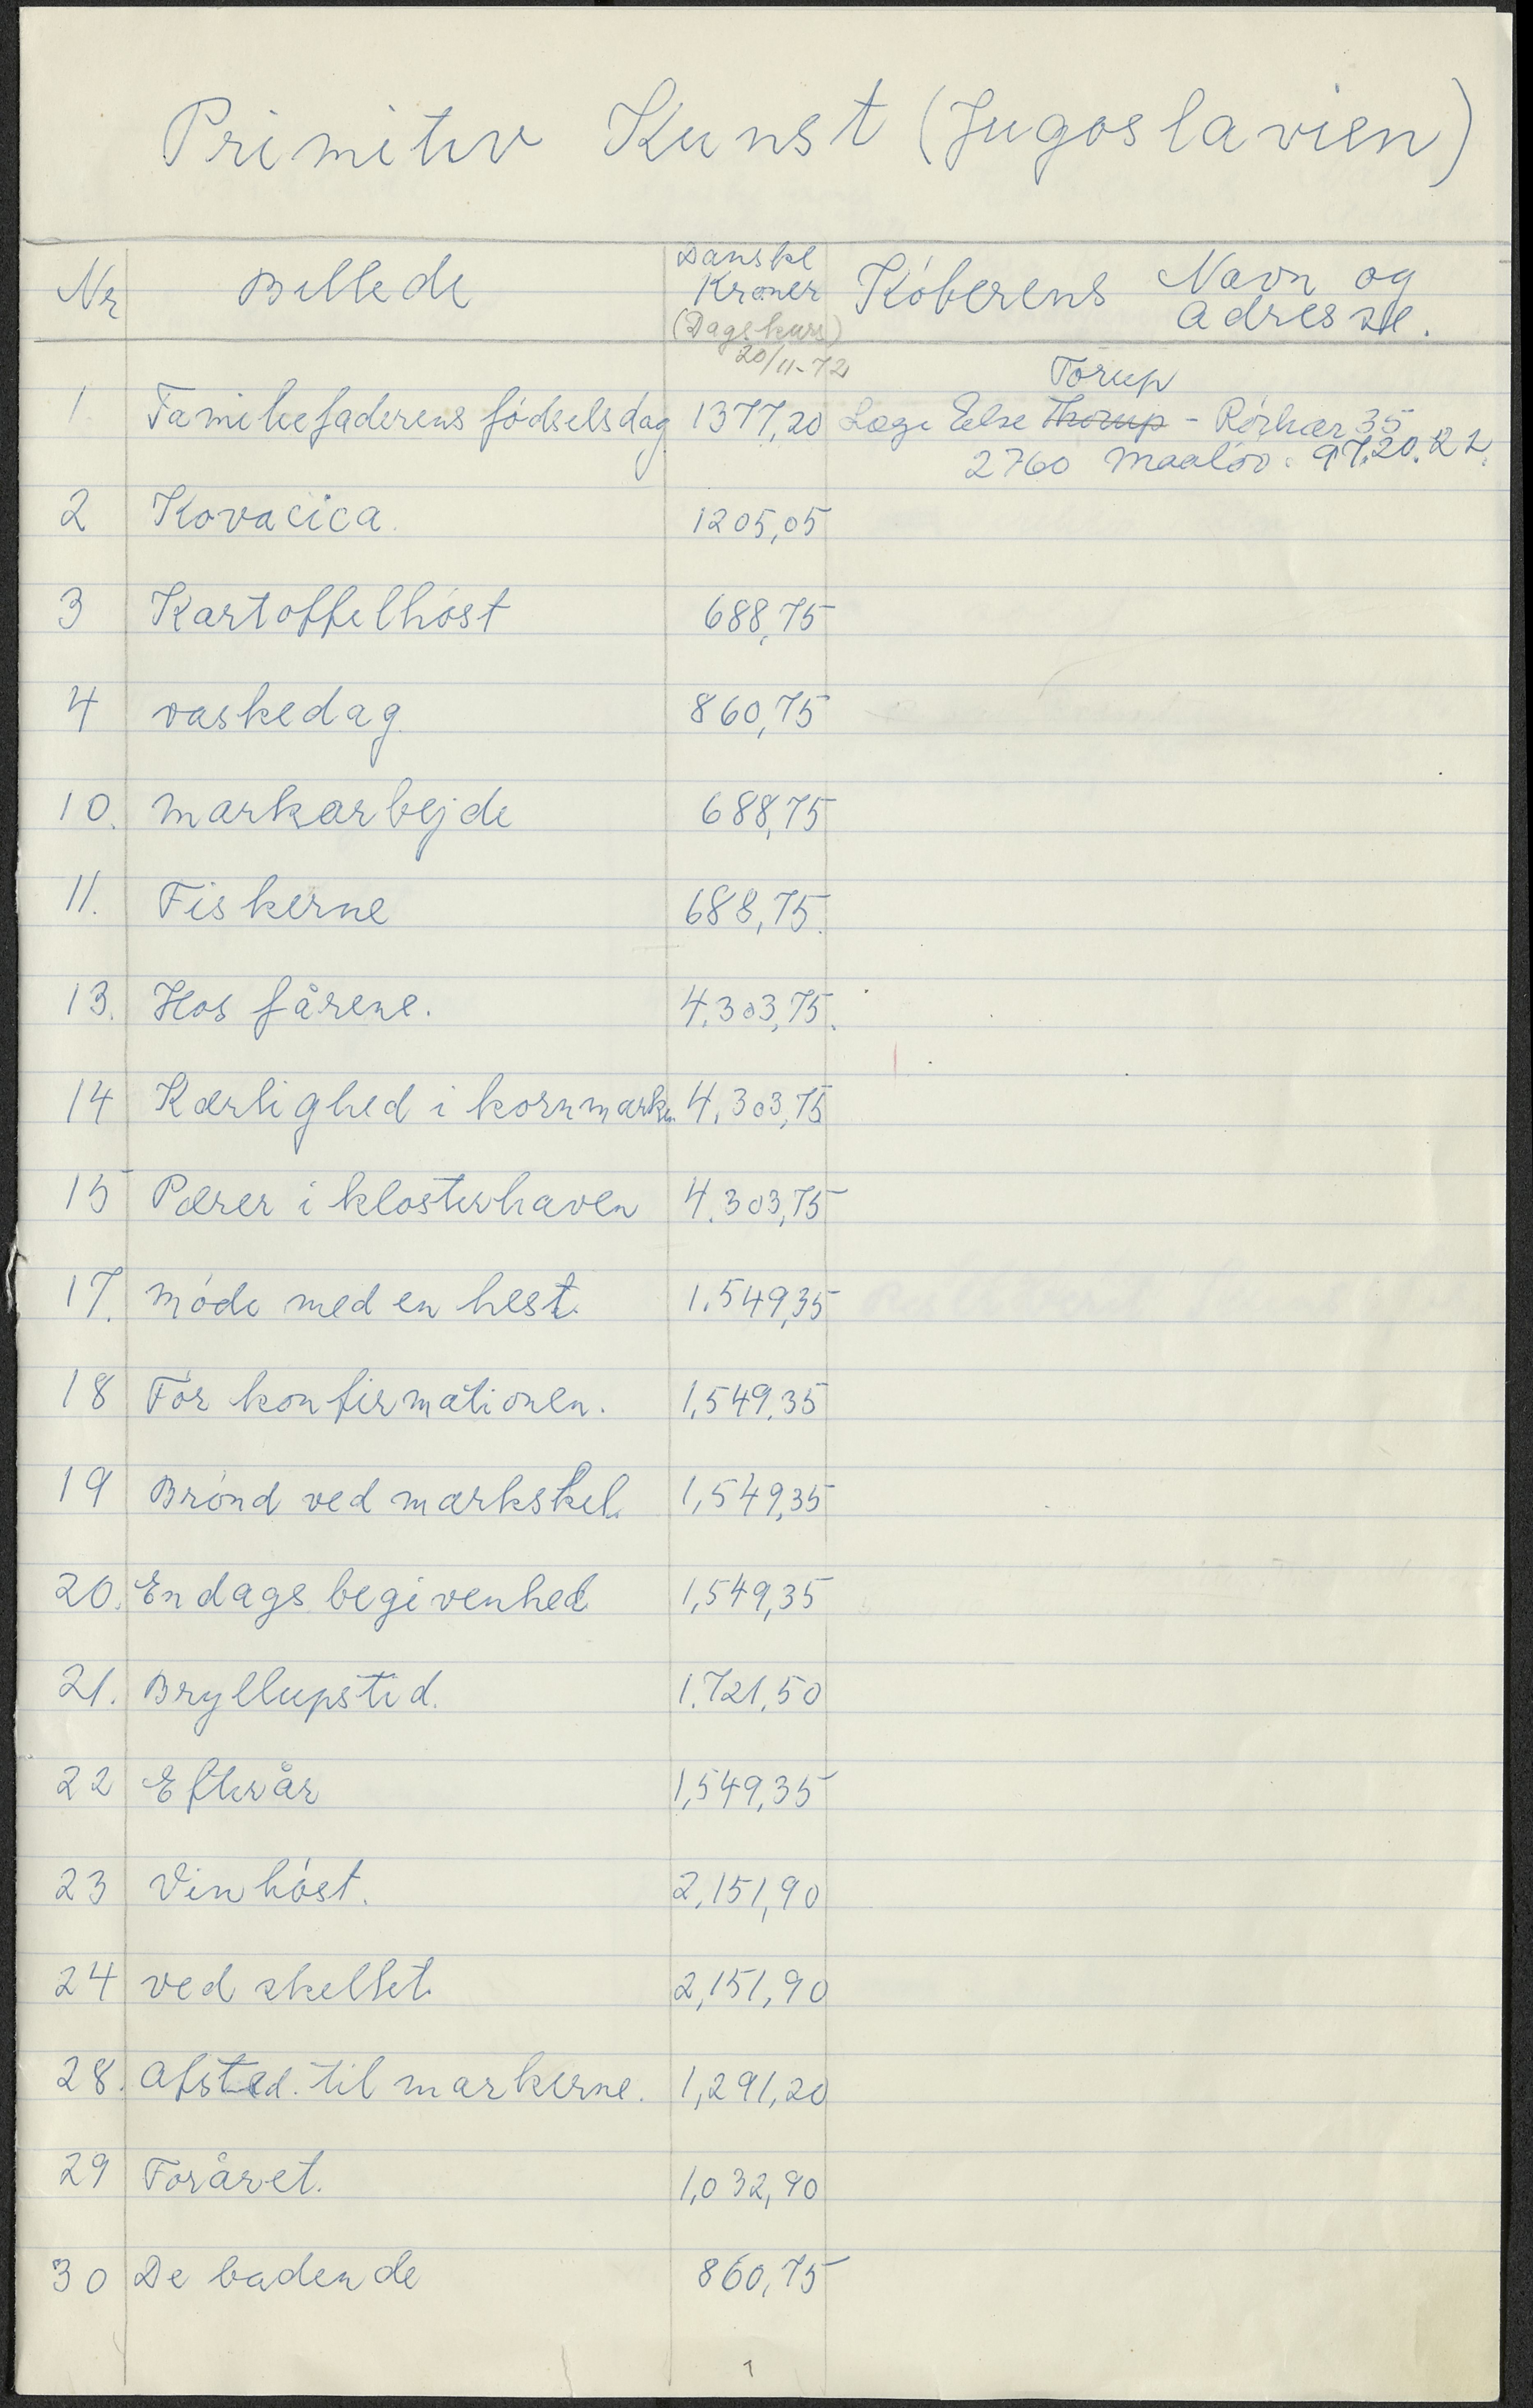 Primitiv Kunst (Jugoslavien)
Nr Billede Danske Kroner (Dagskurs) 20/11-72 Køberens Navn og Adresse.
Torup
1 Familiefaderens fødselsdag 1377,20 Læge Else ~~Thorup~~ - Rørkær 35
2760 Maaløv. 97.20.22.
2 Kovacica. 1205,05
3 Kartoffelhøst 688,75
4 vaskedag. 860,75
10. Markarbejde 688,75
11. Fiskerne 688,75.
13. Hos fårene. 4.303,75.
14 Kærlighed i kornmarken 4.303,75
15 Pærer i klosterhaven 4.303,75
17. Møde med en hest. 1.549,35
18 Før konfirmationen. 1.549,35
19 Brønd ved markskel. 1,549,35
20. En dags begivenhed 1,549,35
21. Bryllupstid. 1.721,50
22 Efterår 1,549,35
23 Vinhøst. 2,151,90
24 ved skellet. 2,151,90
28. Afsted til markerne. 1,291,20
29 Foråret. 1,032,90
30 De badende 860,75
1